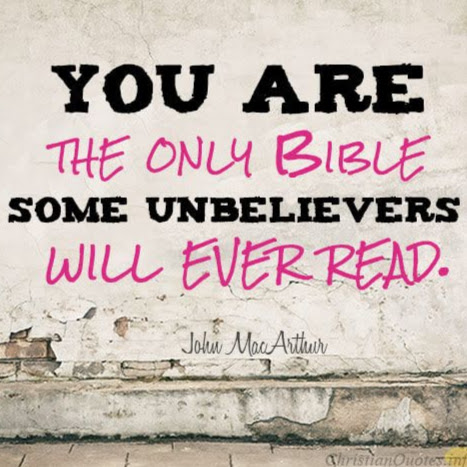 YOU ARE
THE ONLY BIBLE
SOME UNBELIEVERS
WILL EVER READ.
John MacArthur
ChristianQuotes.info